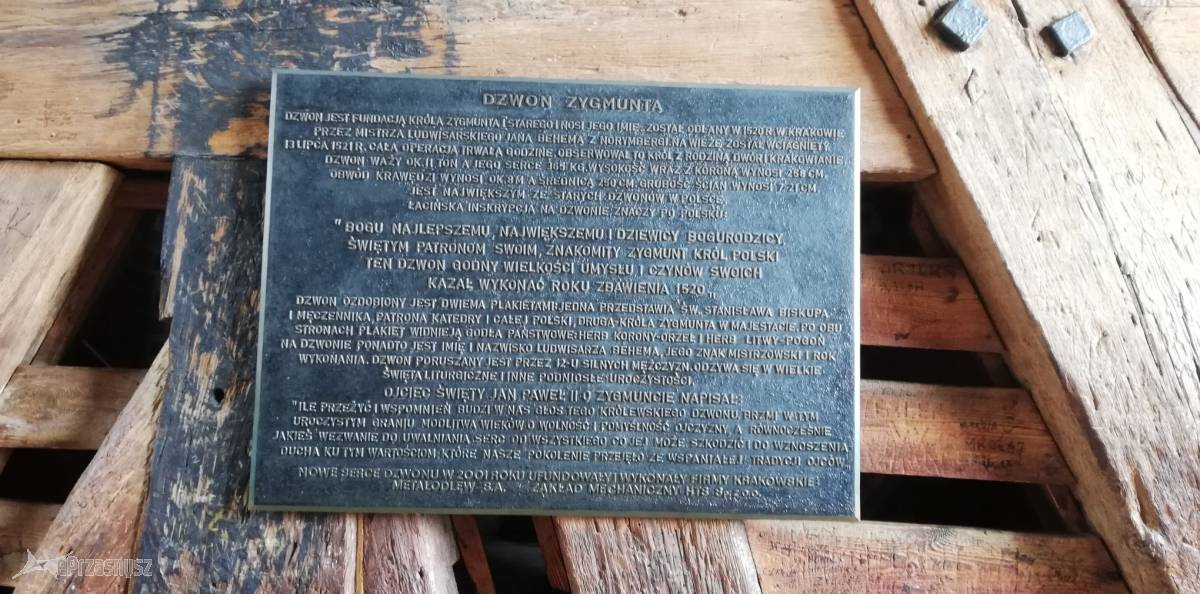 DZWON ZYGMUNTA
DZWON JEST FUNDACJĄ KRÓLA ZYGMUNTA I STAREGO I NOSI JEGO IMIĘ. ZOSTAŁ ODLANY W 1520 R. W KRAKOWIE
PRZEZ MISTRZA LUDWISARSKIEGO JANA BEHEMA Z NORYMBERGI. NA WIEŻĘ ZOSTAŁ WCIĄGNIĘTY
13 LIPCA 1521 R. CAŁA OPERACJA TRWAŁA GODZINĘ. OBSERWOWAŁ TO KRÓL Z RODZINĄ, DWÓR I KRAKOWIANIE.
DZWON WAŻY OK. 11 TON A JEGO SERCE KG. WYSOKOŚĆ WRAZ Z KORONĄ WYNOSI CM.
OBWÓD KRAWĘDZI WYNOSI OK. 8 M A ŚREDNICA CM. GRUBOŚĆ ŚCIAN WYNOSI 7-21 CM
JEST NAJWIĘKSZYM ZE STARYCH DZWONÓW W POLSCE.
ŁACIŃSKA INSKRYPCJA NA DZWONIE ZNACZY PO POLSKU:
"BOGU NAJLEPSZEMU, NAJWIĘKSZEMU I DZIEWICY BOGURODZICY,
ŚWIĘTYM PATRONOM SWOIM, ZNAKOMITY ZYGMUNT KRÓL POLSKI
TEN DZWON GODNY WIELKOŚCI UMYSŁU I CZYNÓW SWOICH
KAZAŁ WYKONAĆ ROKU ZBAWIENIA 1520"
DZWON OZDOBIONY JEST DWIEMA PLAKIETAMI: JEDNA PRZEDSTAWIA ŚW. STANISŁAWA BISKUPA
I MĘCZENNIKA, PATRONA KATEDRY I CAŁEJ POLSKI, DRUGA-KRÓLA ZYGMUNTA W MAJESTACIE. PO OBU
STRONACH PLAKIET WIDNIEJĄ GODŁA PAŃSTWOWE: HERB KORONY-ORZEŁ I HERB LITWY-POGOŃ
NA DZWONIE PONADTO JEST IMIĘ I NAZWISKO LUDWISARZA BEHEMA, JEGO ZNAK MISTRZOWSKI I ROK
WYKONANIA. DZWON PORUSZANY JEST PRZEZ 12-U SILNYCH MĘŻCZYZN. ODZYWA SIĘ W WIELKIE
ŚWIĘTA LITURGICZNE I INNE PODNIOSŁE UROCZYSTOŚCI.
OJCIEC ŚWIĘTY JAN PAWEŁ II O ZYGMUNCIE NAPISAŁ:
"ILE PRZEŻYĆ I WSPOMNIEŃ BUDZI W NAS GŁOS TEGO KRÓLEWSKIEGO DZWONU, BRZMI W TYM
UROCZYSTYM GRANIU MODLITWA WIEKÓW O WOLNOŚĆ I POMYŚLNOŚĆ OJCZYZNY, A RÓWNOCZEŚNIE
JAKIEŚ WEZWANIE DO UWALNIANIA SERC OD WSZYSTKIEGO CO JEJ MOŻE SZKODZIĆ I DO WZNOSZENIA
DUCHA KU TYM WARTOŚCIOM, KTÓRE NASZE POKOLENIE PRZEJĘŁO ZE WSPANIAŁEJ TRADYCJI OJCÓW.
NOWE SERCE DZWONU W 2001 ROKU UFUNDOWAŁY I WYKONAŁY FIRMY KRAKOWSKIE:
METALODLEW S.A. I ZAKŁAD MECHANICZNY HTS Sp. z o.o.
ePrzasnysz